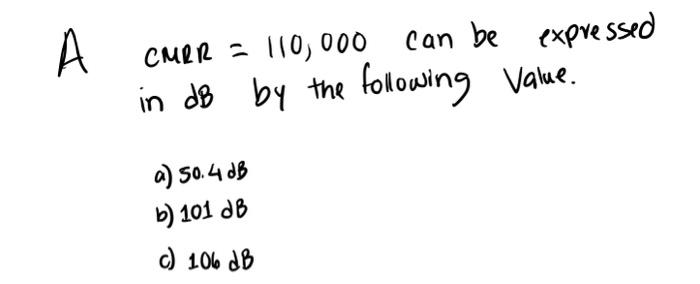 A CMRR = 110,000 can be expressed
in dB by the following Value.
a) 50.4 dB
b) 101 dB
c) 106 dB